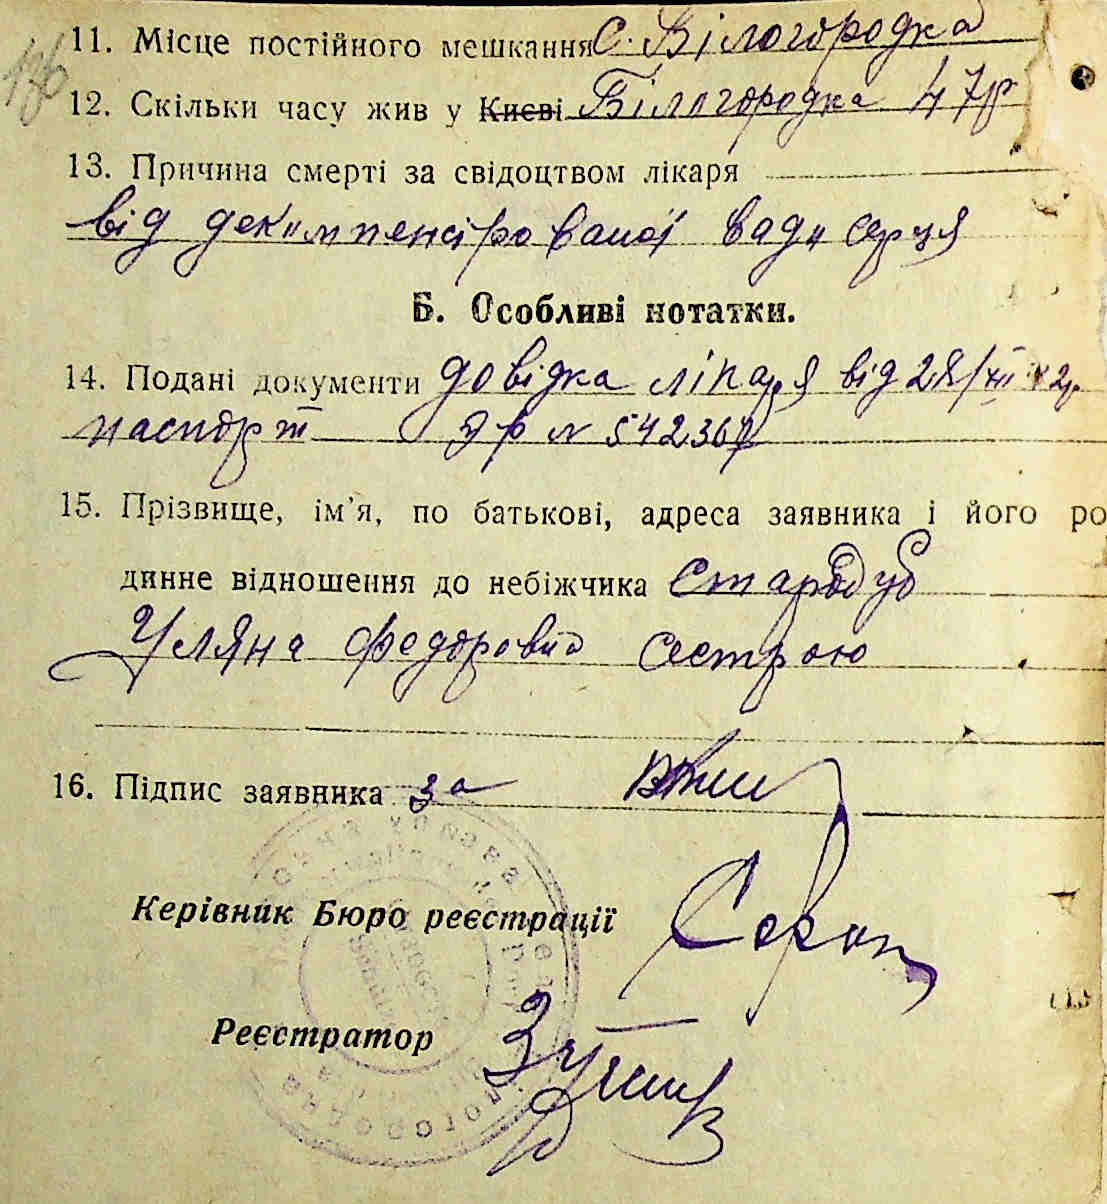 176
11. Місце постійного мешкання с. Білогородка
12. Скільки часу жив у Києві Білогородка 47р
13. Причина смерті за свідоцтвом лікаря
від декимпенсірованої вади серця
Б. Особливі нотатки.
14. Подані документи довідка лікаря від 28/XII 42р.
паспорт № 542367
15. Прізвище, ім’я, по батькові, адреса заявника і його ро
динне відношення до небіжчика Стародуб
Уляна Федоровна сестрою
16. Підпис заявника за
Керівник Бюро реєстрації
Реєстратор